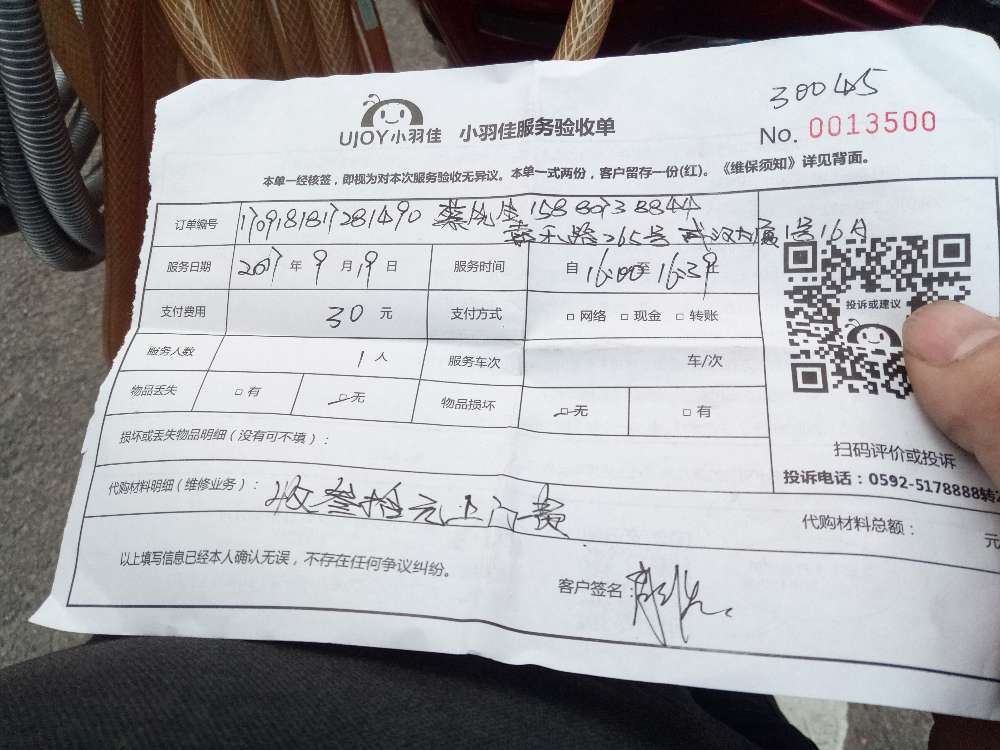 300445
UJOY小羽佳 小羽佳服务验收单
No. 0013500
本单一经核签，即视为对本次服务验收无异议。本单一式两份，客户留存一份(红)。《维保须知》详见背面。
订单编号 1709181817281490 蔡先生 158
265号 武汉大厦1号16A
服务日期 2017年9月19日 服务时间 自16:00至16:39止
支付费用 30元 支付方式 □ 网络 □ 现金 □ 转账
投诉或建议
服务人数 1人 服务车次 车/次
物品丢失 □ 有 □ 无 物品损坏 □ 无 □ 有
损坏或丢失物品明细（没有可不填）：
扫码评价或投诉
投诉电话：0592-5178888转
代购材料明细（维修业务）： 收叁拾元上门费
代购材料总额： 元
以上填写信息已经本人确认无误，不存在任何争议纠纷。
客户签名：